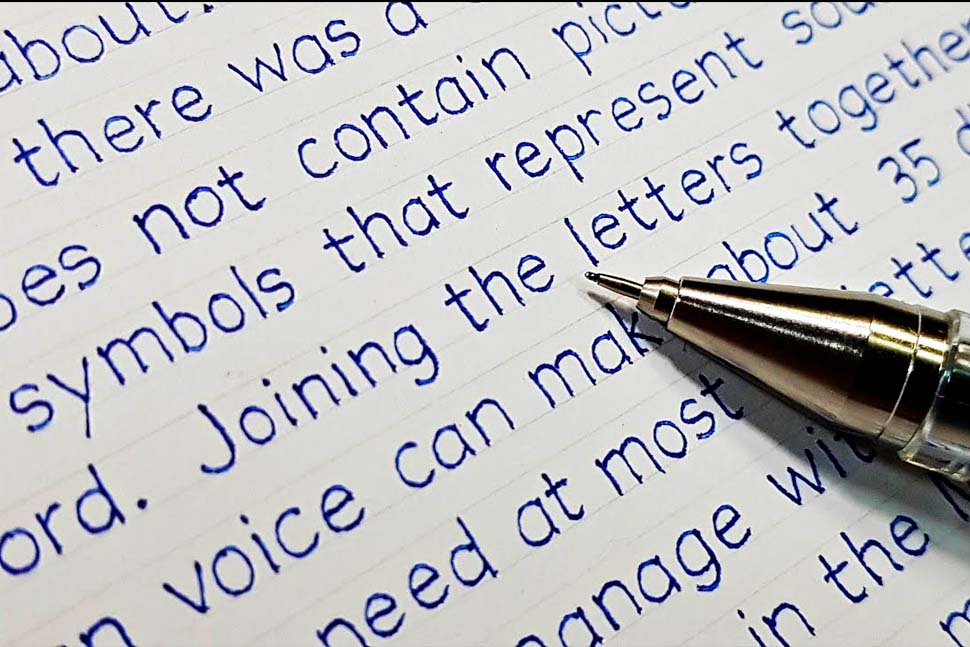 about.
there was a
oes not contain pict
symbols that represent sou
ord. Joining the letters together
n voice can mak about 35 d
need at most ette
anage wit
in the